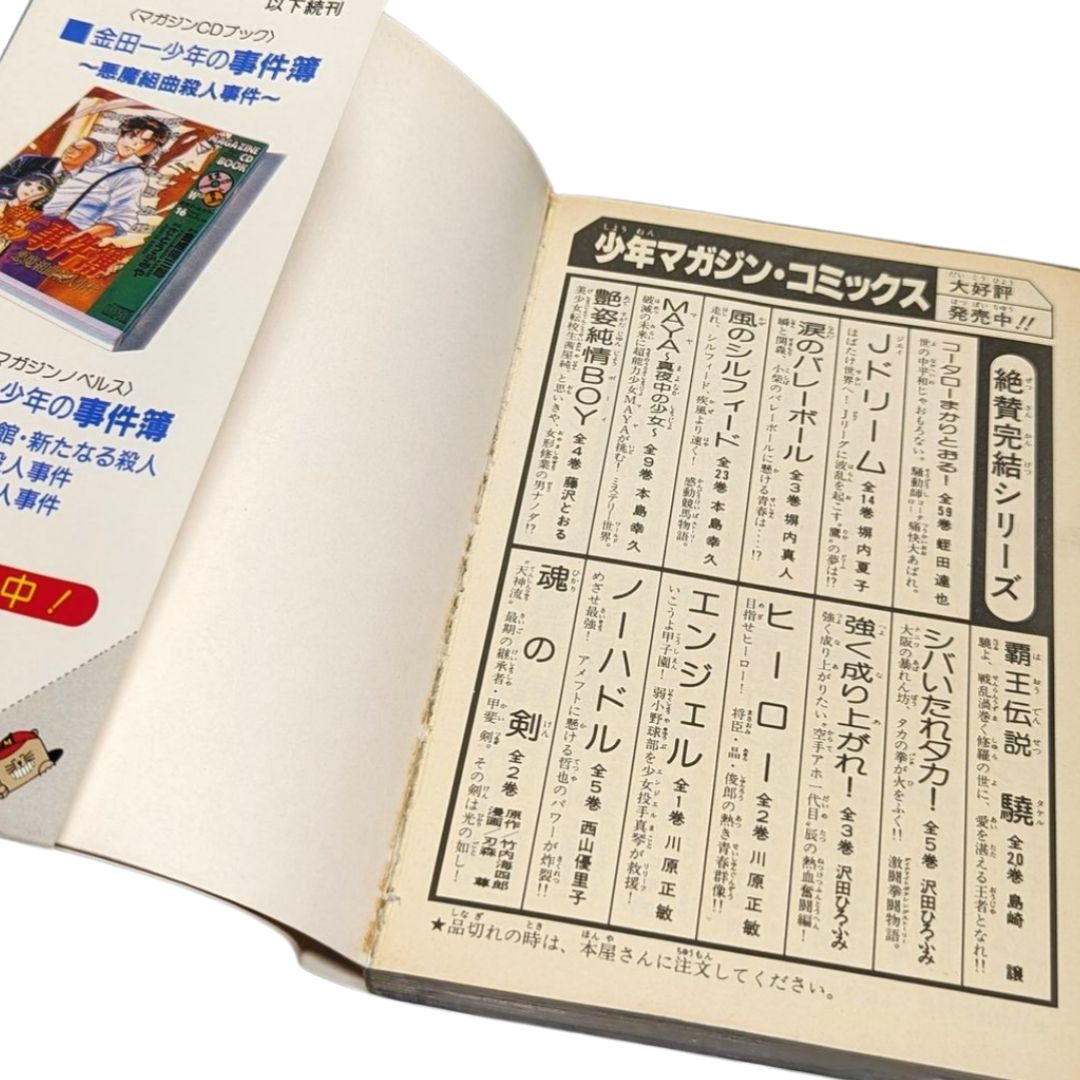 以下続刊
〈マガジンCDブック〉
■金田一少年の事件簿
〜悪魔組曲殺人事件〜
MAGAZINE
CD
BOOK
16
マガジンノベルス〉
少年の事件簿
館・新たなる殺人
殺人事件
人事件
中!
少年マガジン・コミックス
大好評
発売中!!
絶賛完結シリーズ
コータローまかりとおる! 全59巻 蛭田達也
世の中平和じゃおもろない。騒動師コータロー痛快大あばれ。
Jドリーム 全14巻 塀内夏子
はばたけ世界へ!Jリーグに波乱を起こす“鷹”の夢は!?
涙のバレーボール 全3巻 塀内真人
瞬と関森、小柴のバレーボールに懸ける青春は…!?
風のシルフィード 全23巻 本島幸久
走れ、シルフィード、疾風より速く!感動競馬物語。
MAYA〜真夜中の少女〜 全9巻 本島幸久
破滅の未来に超能力少女MAYAが挑む!ミステリー世界。
艶姿純情BOY 全4巻 藤沢とおる
美少女転校生茜屋純、と思いきや、女形修業の男ナノダ!?
覇王伝説 驍 全20巻 島崎 譲
驍よ、戦乱渦巻く修羅の世に、愛を湛える王者となれ!!
シバいたれタカ! 全5巻 沢田ひろふみ
大阪の暴れん坊、タカの拳が火をふく!!激闘拳闘物語。
強く成り上がれ! 全3巻 沢田ひろふみ
強く成り上がりたい。“空手アホ一代目”辰の熱血奮闘編!
ヒーロー 全2巻 川原正敏
目指せヒーロー!将臣・晶・俊郎の熱き青春群像!!
エンジェル 全1巻 川原正敏
いこうよ甲子園!弱小野球部を少女投手真琴が救援!
ノーハドル 全5巻 西山優里子
めざせ最強!アメフトに懸ける哲也のパワーが炸裂!!
魂の剣 全2巻 原作/竹内海四郎 漫画/刃森 尊
“天神流”最期の継承者・甲斐 剣。その剣は光の如し!
★品切れの時は、本屋さんに注文してください。